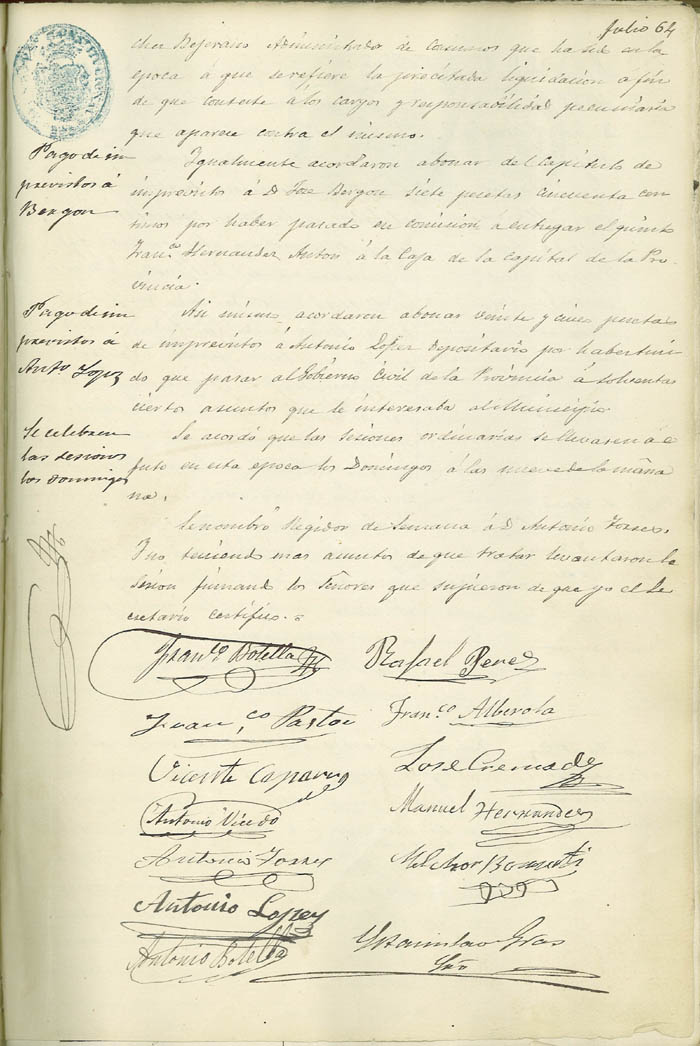 Julio 64
cher Bejerano Administrador de Consumos que ha sido en la
epoca á que se refiere la precitada liquidacion a fin
de que conteste á los cargos y responsabilidad pecuniaria
que aparece contra el mismo.
Pago de im
previstos á
Bergon
Igualmente acordaron abonar del Capitulo de
imprevistos á D. Jose Bergon siete pesetas cincuenta cen
timos por haber pasado en comision á entregar el quinto
Fran.co Hernandez Anton á la Caja de la capital de la Pro-
vincia.
Pago de im
previstos á
Ant.o Lopez
Asi mismo acordaron abonar veinte y cinco pesetas
de imprevistos á Antonio Lopez Depositario por haber teni
do que pasar al Gobierno Civil de la Provincia á solventar
ciertos asuntos que le interesaba al Municipio.
Se celebren
las sesiones
los domingos
Se acordó que las sesiones ordinarias se llevasen á e
fecto en esta epoca los Domingos á las nueve de la maña
na.
Se nombró Regidor de Semana á D. Antonio Torres.
Y no teniendo mas asuntos de que tratar levantaron la
sesion firmando los Señores que supieron de que yo el Se
cretario certifico.=
Fran.co Botella Rafael Perez
Juan Pastor Fran.co Alberola
Vicente Caparros Jose Cremades
Antonio Vicedo Manuel Hernandez
Antonio Torres Melchor
Antonio Lopez
Antonio Botella Estanislao Gras
Srio